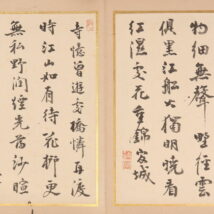 物細無聲野徑雲
俱黑江船火獨明曉看
紅濕處花重錦官城
寺憶曾遊處橋憐再渡
時江山如有待花柳更
無私野潤煙光薄沙暄